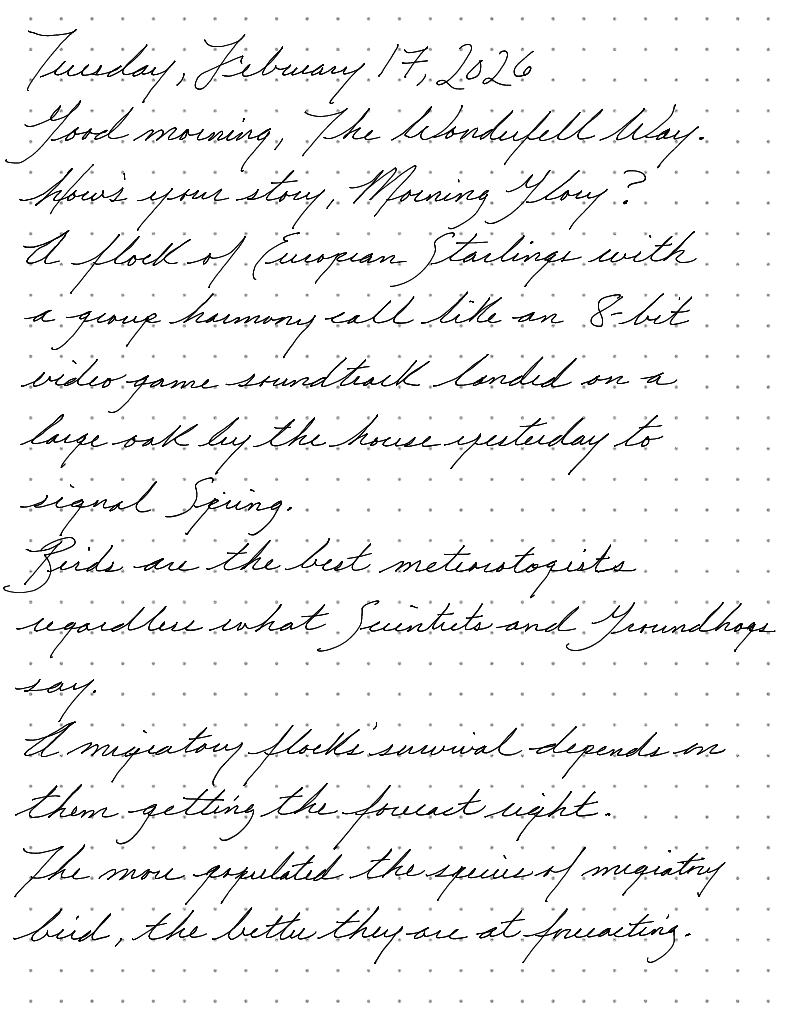 Tuesday, February 17, 2026
Good morning, The Wonderfell Way.
How's your story, Morning Glory?
A flock of European Starlings with
a group harmony call like an 8-bit
video game soundtrack landed on a
large oak by the house yesterday to
signal Spring.
Birds are the best meteorologists
regardless what Scientists and Groundhogs
say.
A migratory flocks' survival depends on
them getting the forecast right.
The more populated the species of migratory
bird, the better they are at forecasting.